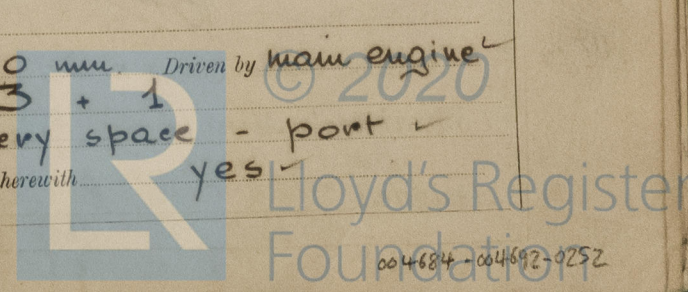 0 mm. Driven by main engine
3 + 1
ery space - port
herewith yes
© 2020
LR Lloyd's Register
Foundation
004684-004692-0252